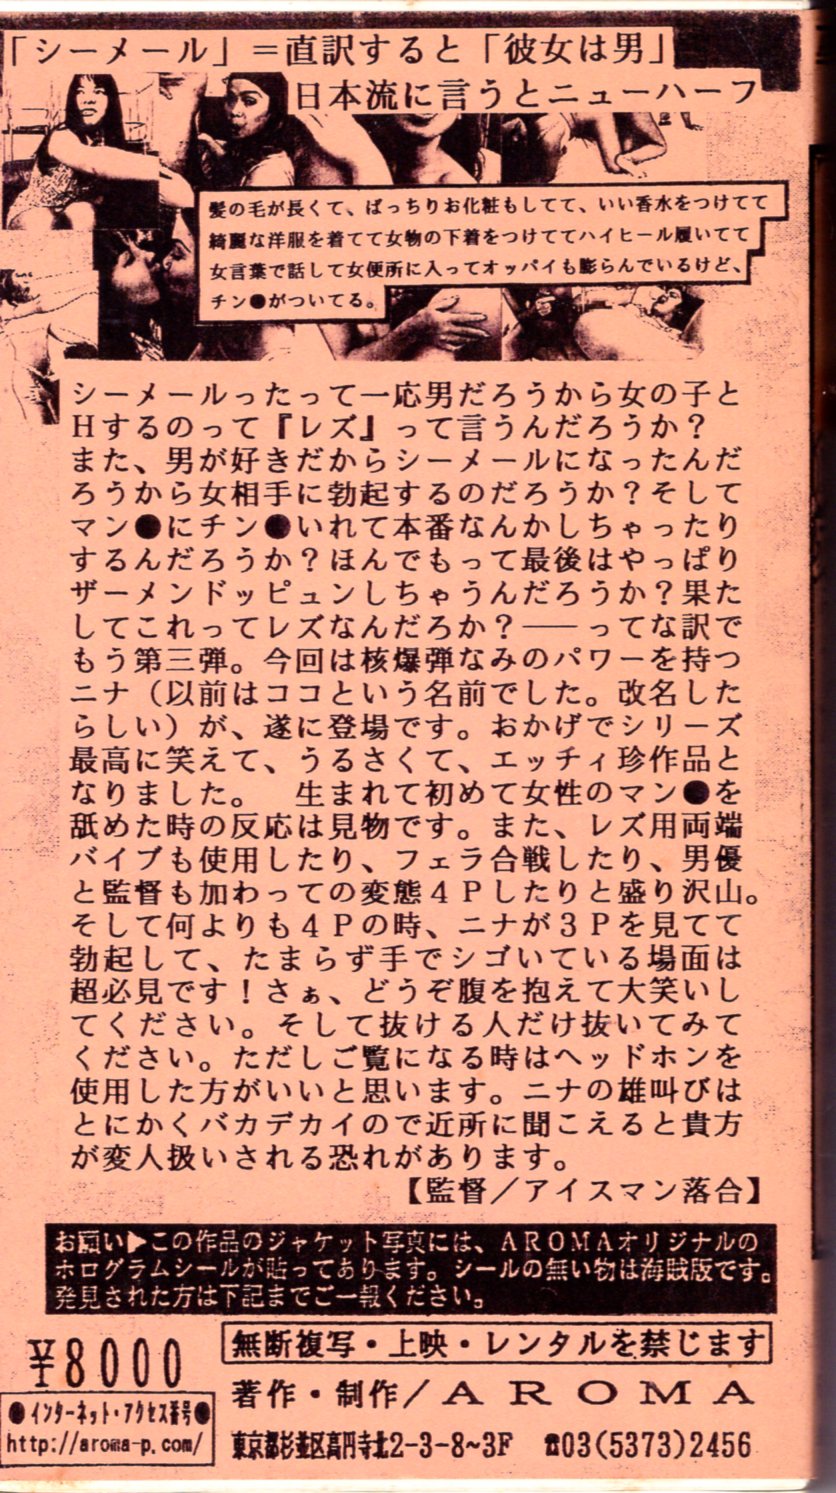 「シーメール」＝直訳すると「彼女は男」
日本流に言うとニューハーフ
髪の毛が長くて、ばっちりお化粧もしてて、いい香水をつけてて
綺麗な洋服を着てて女物の下着をつけててハイヒール履いてて
女言葉で話して女便所に入ってオッパイも膨らんでいるけど、
チン●がついてる。
シーメールったって一応男だろうから女の子と
Hするのって『レズ』って言うんだろうか？
また、男が好きだからシーメールになったんだ
ろうから女相手に勃起するのだろうか？そして
マン●にチン●いれて本番なんかしちゃったり
するんだろうか？ほんでもって最後はやっぱり
ザーメンドッピュンしちゃうんだろうか？果た
してこれってレズなんだろか？──ってな訳で
もう第三弾。今回は核爆弾なみのパワーを持つ
ニナ（以前はココという名前でした。改名した
らしい）が、遂に登場です。おかげでシリーズ
最高に笑えて、うるさくて、エッチィ珍作品と
なりました。　生まれて初めて女性のマン●を
舐めた時の反応は見物です。また、レズ用両端
バイブも使用したり、フェラ合戦したり、男優
と監督も加わっての変態４Ｐしたりと盛り沢山。
そして何よりも４Ｐの時、ニナが３Ｐを見てて
勃起して、たまらず手でシゴいている場面は
超必見です！さぁ、どうぞ腹を抱えて大笑いし
てください。そして抜ける人だけ抜いてみて
ください。ただしご覧になる時はヘッドホンを
使用した方がいいと思います。ニナの雄叫びは
とにかくバカデカイので近所に聞こえると貴方
が変人扱いされる恐れがあります。
【監督／アイスマン落合】
お願い▶この作品のジャケット写真には、ＡＲＯＭＡオリジナルの
ホログラムシールが貼ってあります。シールの無い物は海賊版です。
発見された方は下記までご一報ください。
¥8000
無断複写・上映・レンタルを禁じます
著作・制作／ＡＲＯＭＡ
●インターネット・アクセス番号●
http://aroma-p.com/
東京都杉並区高円寺北2-3-8~3F ☎03(5373)2456